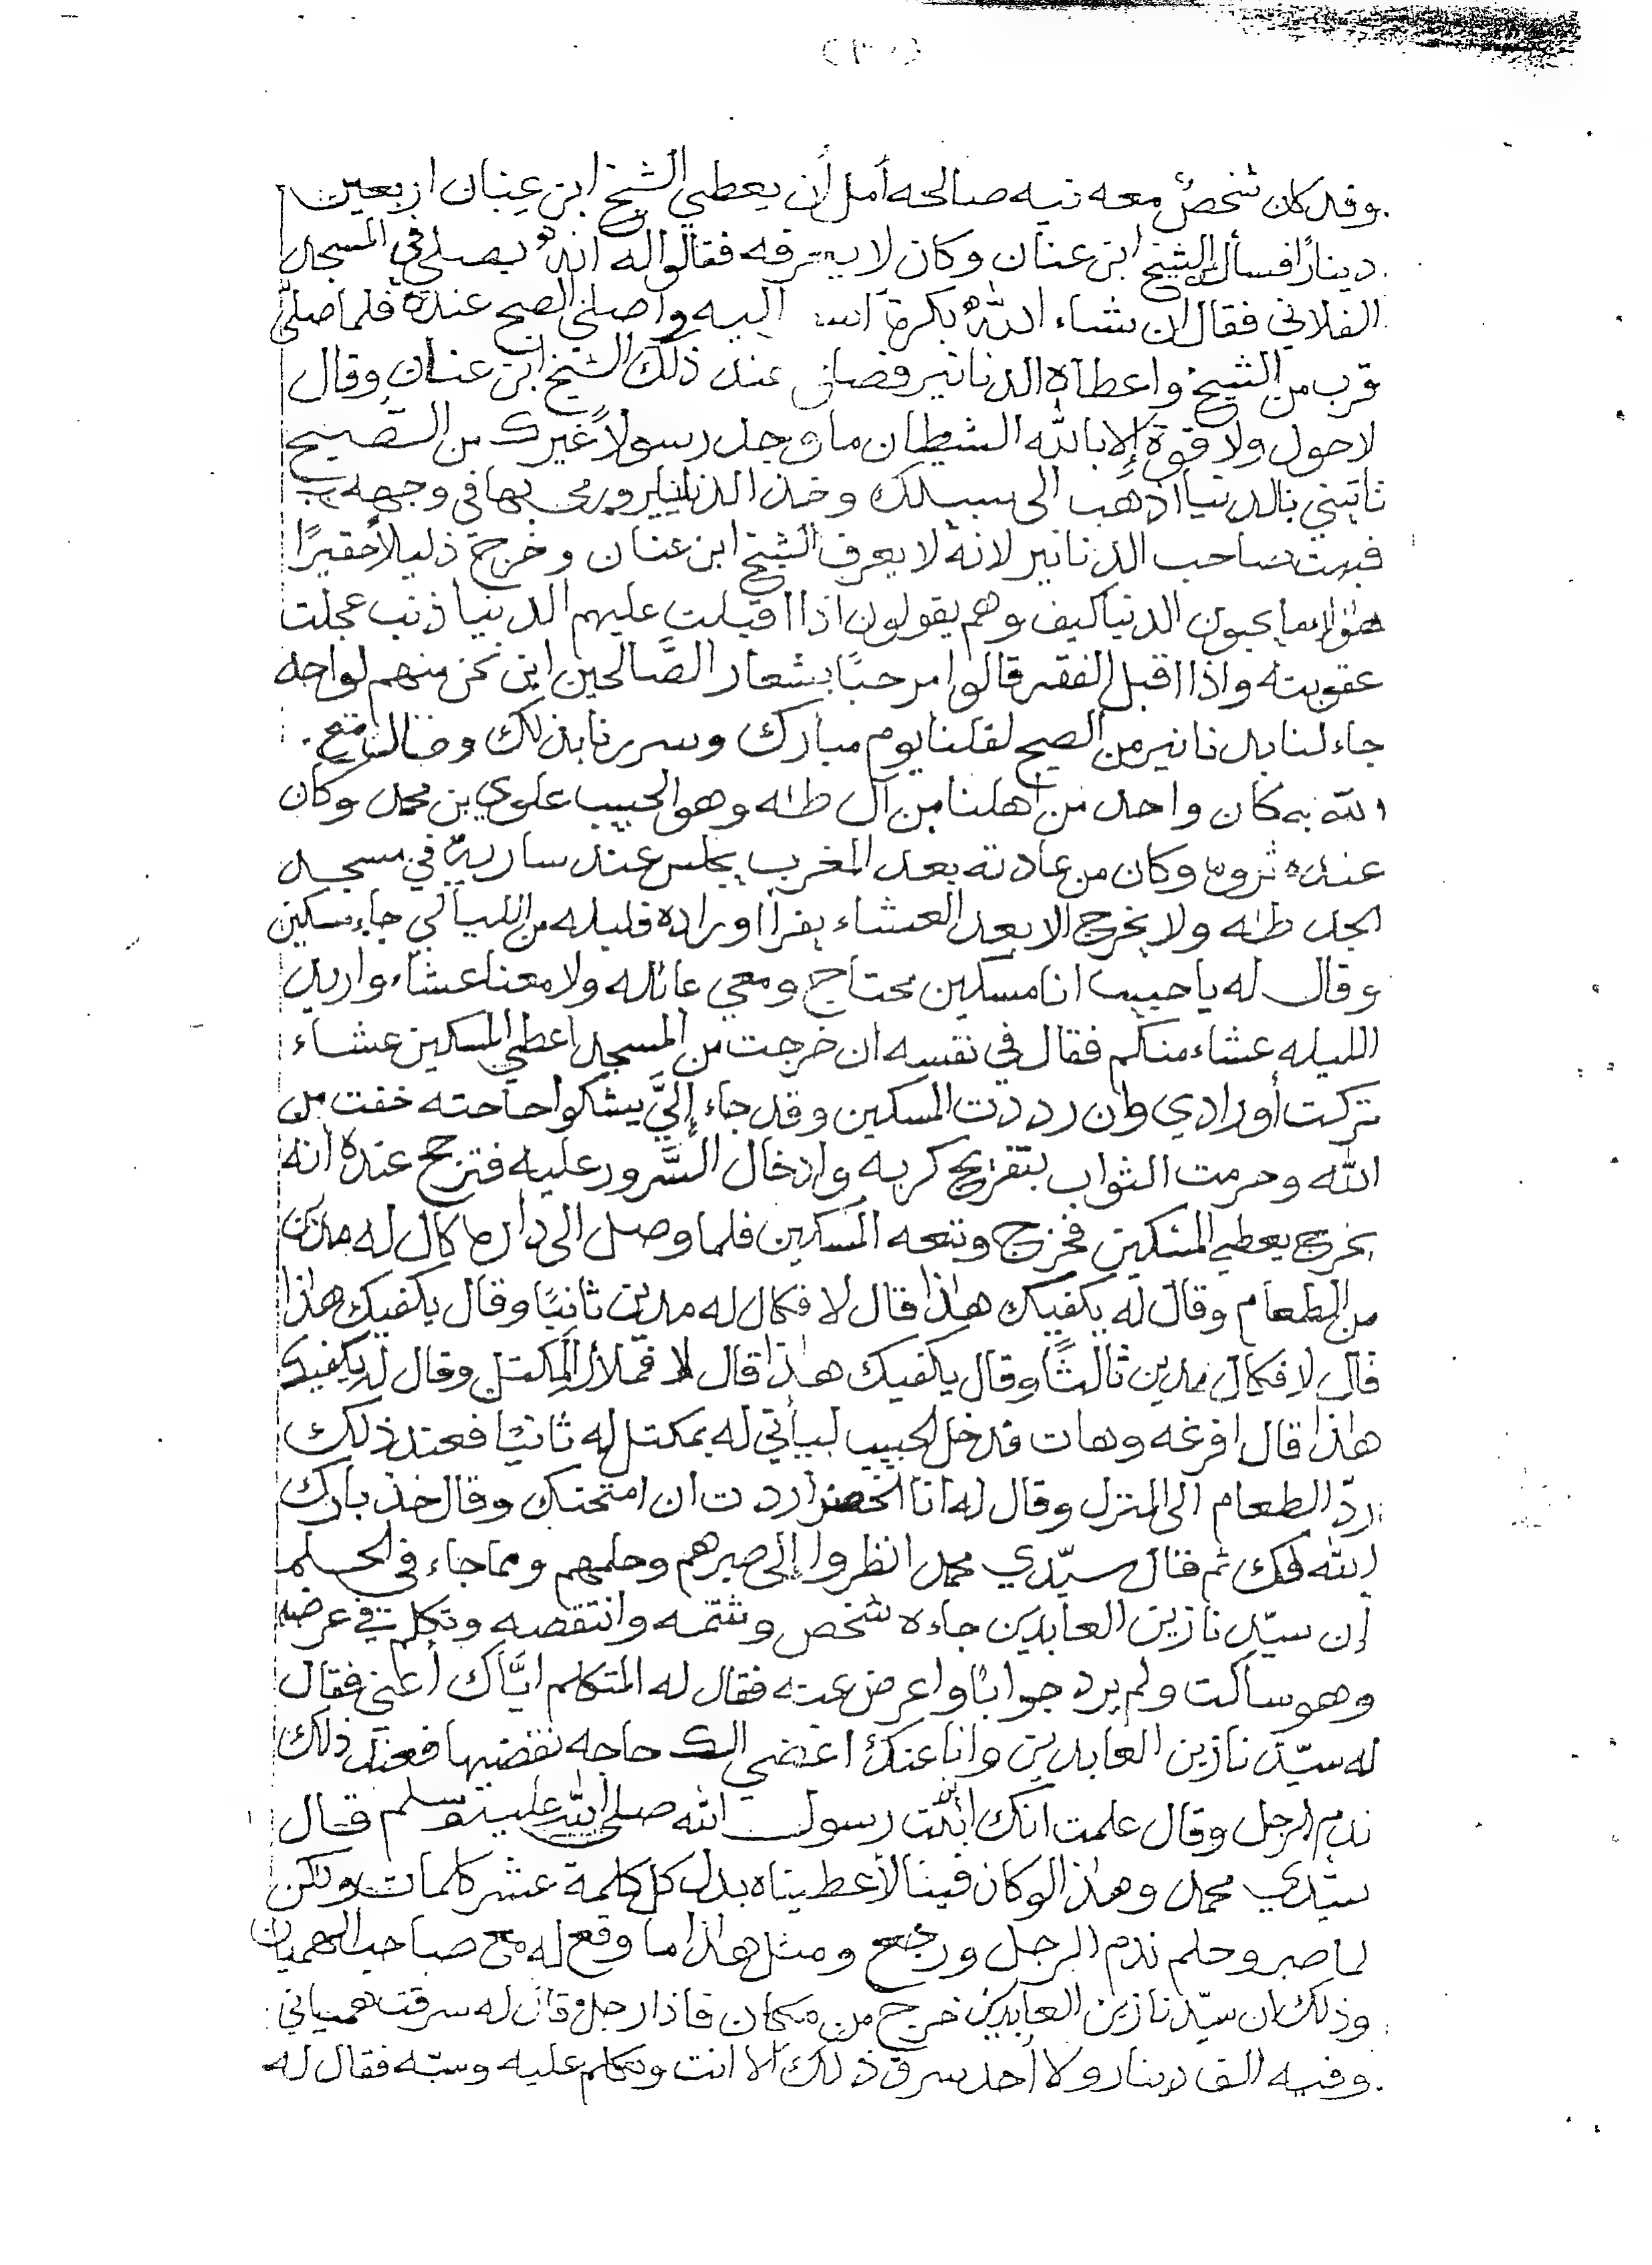 وقد كان شخصٌ معه نيه صالحه أمل أن يعطي الشيخ ابن عِنان اربعين
دينارًا فسأل عن الشيخ ابن عنان وكان لا يعرفه فقالوا له انهُ يصلي في المسجد
الفلاني فقال ان شاء اللهُ بكرة اليه واصلي الصبح عنده فلما صلّى
قرب من الشيخ واعطاه الدنانير عند ذلك الشيخ ابن عنان وقال
لاحول ولا قوة إلا بالله الشيطان ما وجد رسولاً غيرك من الصبح
تاتيني بالدنيا اذهب الى سبيلك وخذ الدنانير ورمى بها في وجهه
فبهت صاحب الدنانير لانه لا يعرف الشيخ ابن عنان وخرج ذليلاً حقيرًا
هؤلاء ما يحبون الدنيا كيف وهم يقولون اذا اقبلت عليهم الدنيا ذنب عجلت
عقوبته واذا اقبل الفقر قالوا مرحبًا بشعار الصَّالحين اين نحن منهم لو احد
جاء لنا بدنانير من الصبح لقلنا يوم مبارك وسررنا بذلك وقال متع
الله به كان واحد من أهلنا من آل طه وهو الحبيب علوي بن محمد وكان
عنده ثروة وكان من عادته بعد المغرب يجلس عند سارية في مسجد
الجد طه ولا يخرج الا بعد العشاء يقرأ اوراده فليله من الليالي جاء مسكين
وقال له يا حبيب انا مسكين محتاج ومعي عائله ولا معنا عشاء واريد
الليله عشاء منكم فقال في نفسه ان خرجت من المسجد اعطي المسكين عشاء
تركت أورادي وان رددت المسكين وقد جاء إليَّ يشكوا حاجته خفت من
الله وحرمت الثواب بتفريج كربه وادخال السَّرور عليه فترجح عنده انه
يخرج يعطي المسكين فخرج وتبعه المسكين فلما وصل الى داره كال له مدين
من الطعام وقال له يكفيك هذا قال لا فكال له مدين ثانيًا وقال يكفيك هذا
قال لا فكال مدين ثالثًا وقال يكفيك هذا قال لا فملأ المكتل وقال له يكفيك
هذا قال افرغه وهات فدخل الحبيب ليأتي له بمكتل له ثانيًا فعند ذلك
ردّ الطعام الى المنزل وقال له انا الخضر اردت ان امتحنك وقال خذ بارك
الله لك ثم قال سيّدي محمد انظروا إلى صبرهم وحلمهم ومما جاء في الحلم
أن سيّدنا زين العابدين جاءه شخص وشتمه وانتقصه وتكلم في عرضه
وهو ساكت ولم يرد جوابًا واعرض عنه فقال له المتكلم ايَّاك أعني فقال
له سيّدنا زين العابدين وانا عنك اغضي الك حاجه نقضيها فعند ذلك
ندم الرجل وقال علمت انك ابن بنت رسول الله صلى الله عليه وسلم قال
سيّدي محمد وهذا لو كان فينا لأعطيناه بدل كل كلمة عشر كلمات ولكن
لما صبر وحلم ندم الرجل ورجع ومثل هذا ما وقع له مع صاحب الهميان
وذلك ان سيّدنا زين العابدين خرج من مكان فاذا رجلٌ قال له سرقت همياني
وفيه الف دينار ولا أحد سرق ذلك الا انت وتكلم عليه وسبّه فقال له